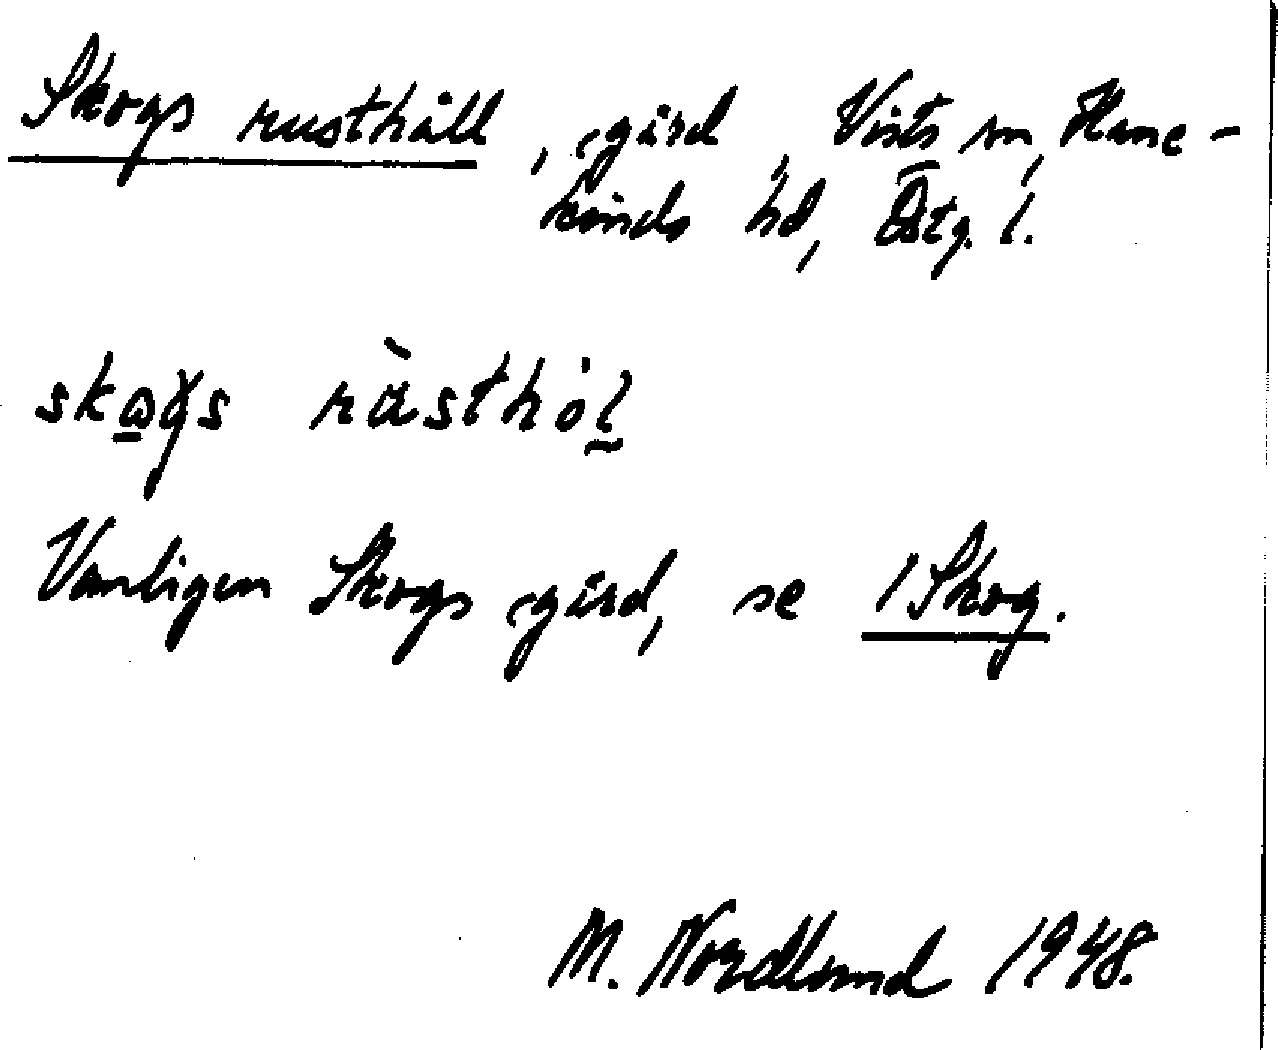 Skogs rusthåll, gård, Vists sn, Hane-
kinds hd, Östg. l.
Vanligen Skogs gård, se 1 Skog.
M. Nordlund 1948.